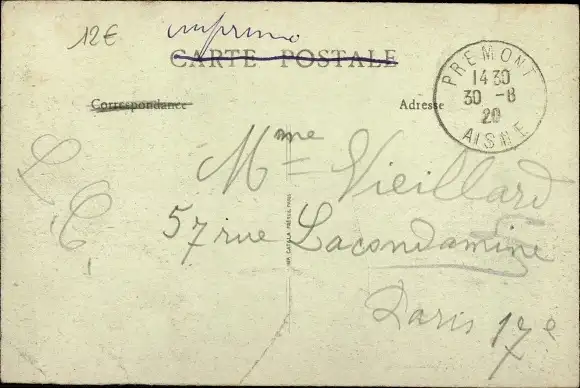 12€
imprimé
CARTE POSTALE
Correspondance
Adresse
PREMONT
14 30
30 -8
20
AISNE
Mme Vieillard
57 rue Lacondamine
Paris 17e
L. C.
IMP. CATALA FRÈRES, PARIS